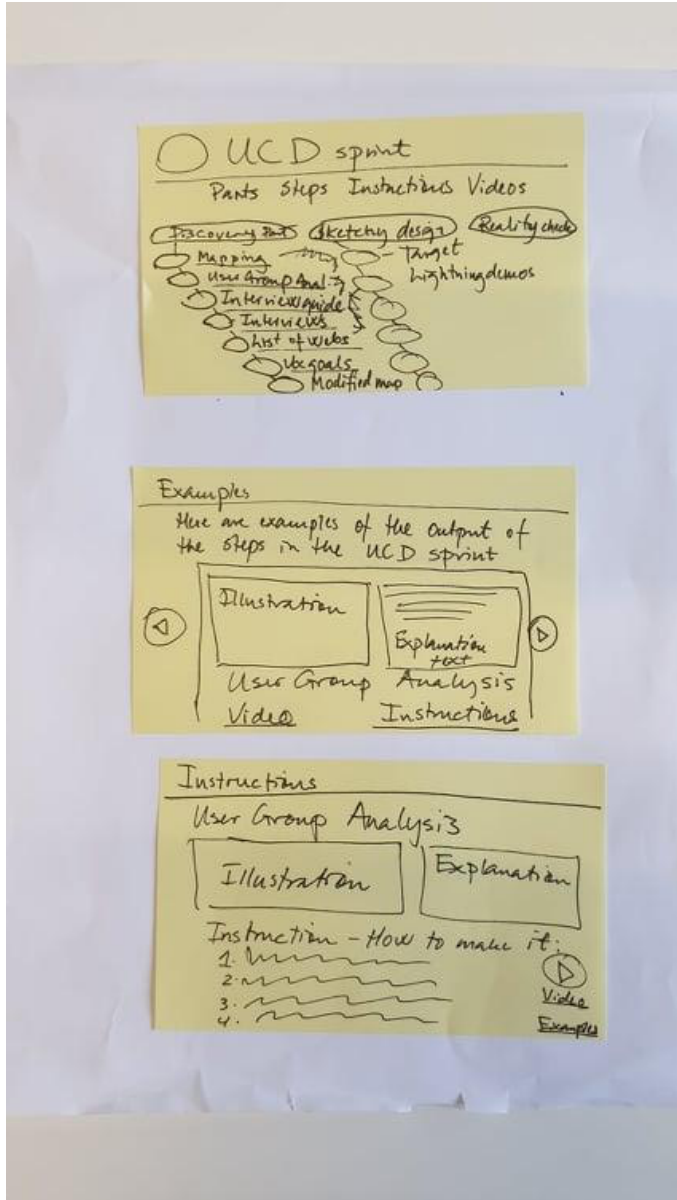 UCD sprint
Parts Steps Instructions Videos
Discovery Part Sketchy design Reality check
Mapping - Target
User Group Anal. Lightning demos
Interview guide
Interviews
List of webs
Ux goals
Modified map
Examples
Here are examples of the output of
the steps in the UCD sprint
Illustration
Explanation
text
User Group Analysis
Video Instructions
Instructions
User Group Analysis
Illustration Explanation
Instruction - How to make it:
1.
2.
3.
4.
Video
Examples